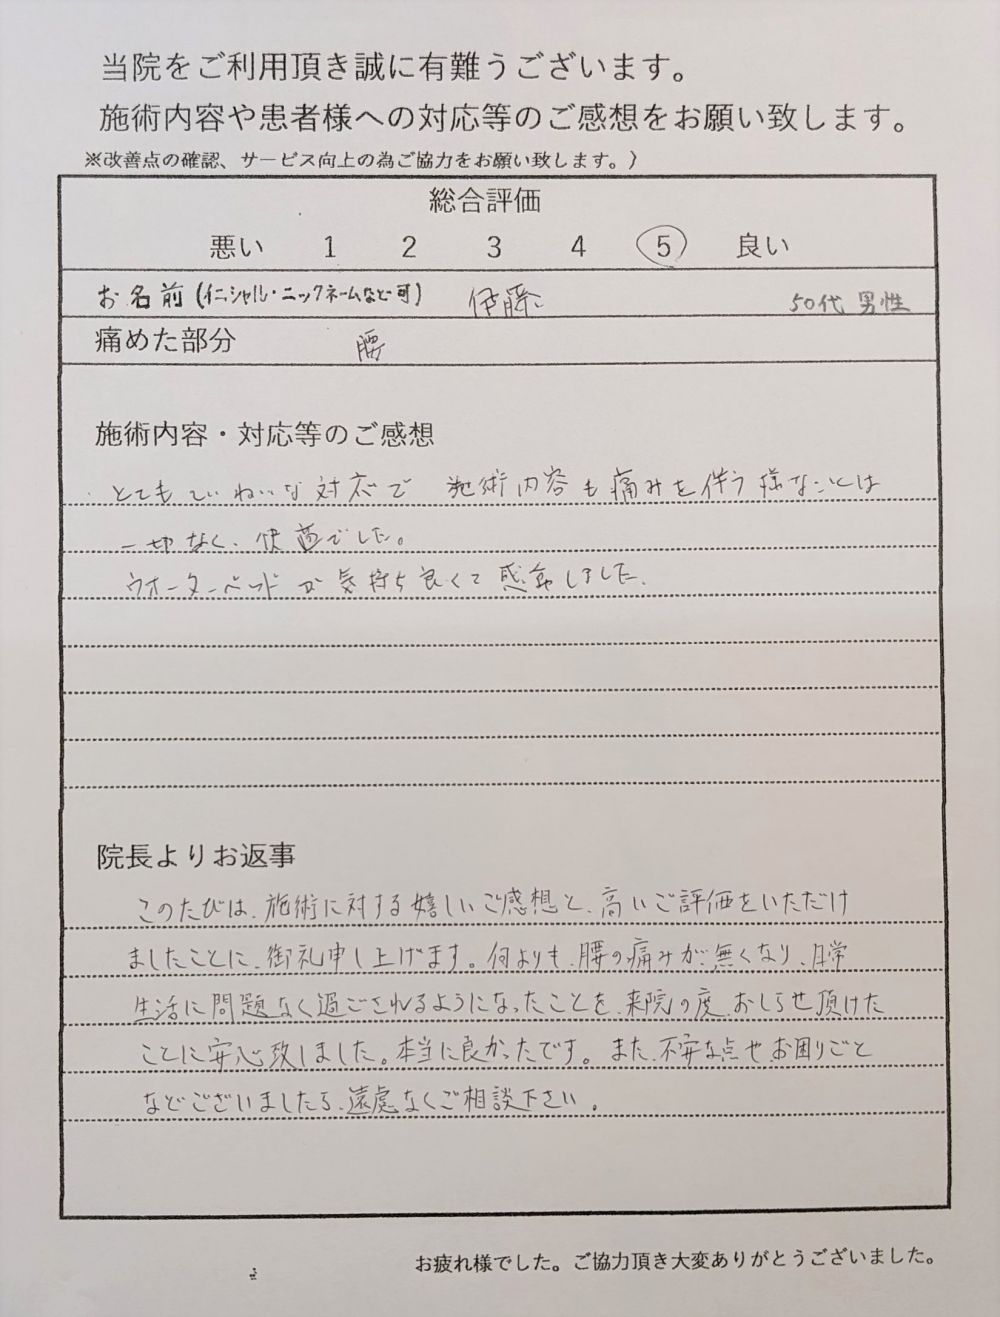 当院をご利用頂き誠に有難うございます。
施術内容や患者様への対応等のご感想をお願い致します。
※改善点の確認、サービス向上の為ご協力をお願い致します。）
総合評価
悪い 1 2 3 4 5 良い
お名前(イニシャル・ニックネームなど可) 伊藤 50代 男性
痛めた部分 腰
施術内容・対応等のご感想
とてもていねいな対応で 施術内容も痛みを伴う様なことは
一切なく、快適でした。
ウォーターベッドが気持ち良くて感動しました。
院長よりお返事
このたびは、施術に対する嬉しいご感想と、高いご評価をいただけ
ましたことに、御礼申し上げます。何よりも、腰の痛みが無くなり、日常
生活に問題なく過ごされるようになったことを、来院の度、おしらせ頂けた
ことに安心致しました。本当に良かったです。また、不安な点やお困りごと
などございましたら、遠慮なくご相談下さい。
お疲れ様でした。ご協力頂き大変ありがとうございました。